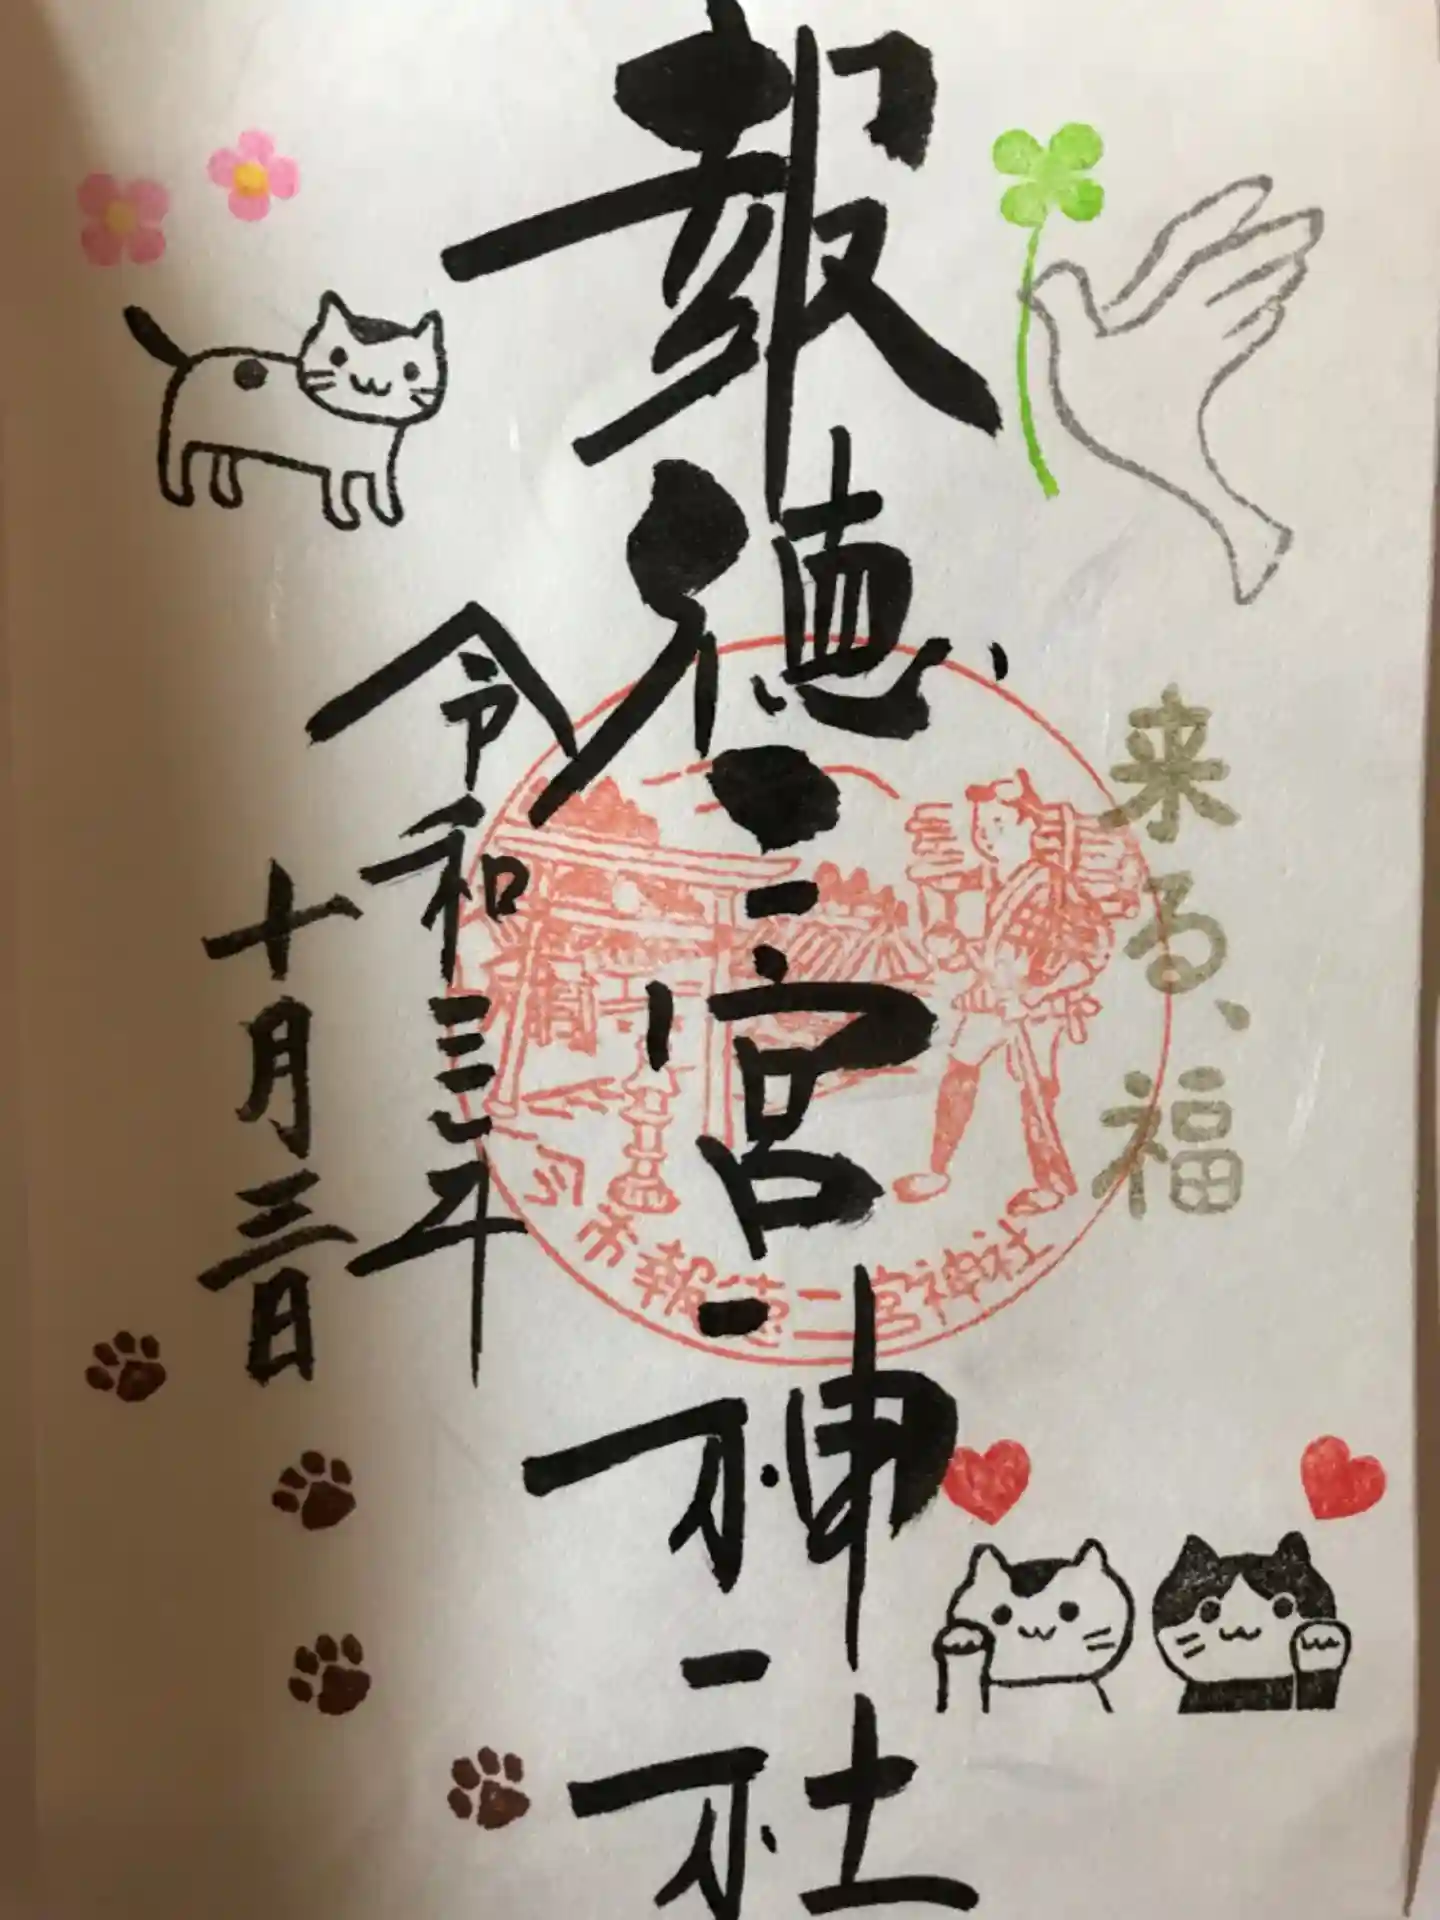 来る、福
報徳二宮神社
市報徳二宮神社
令和三年
十月三日